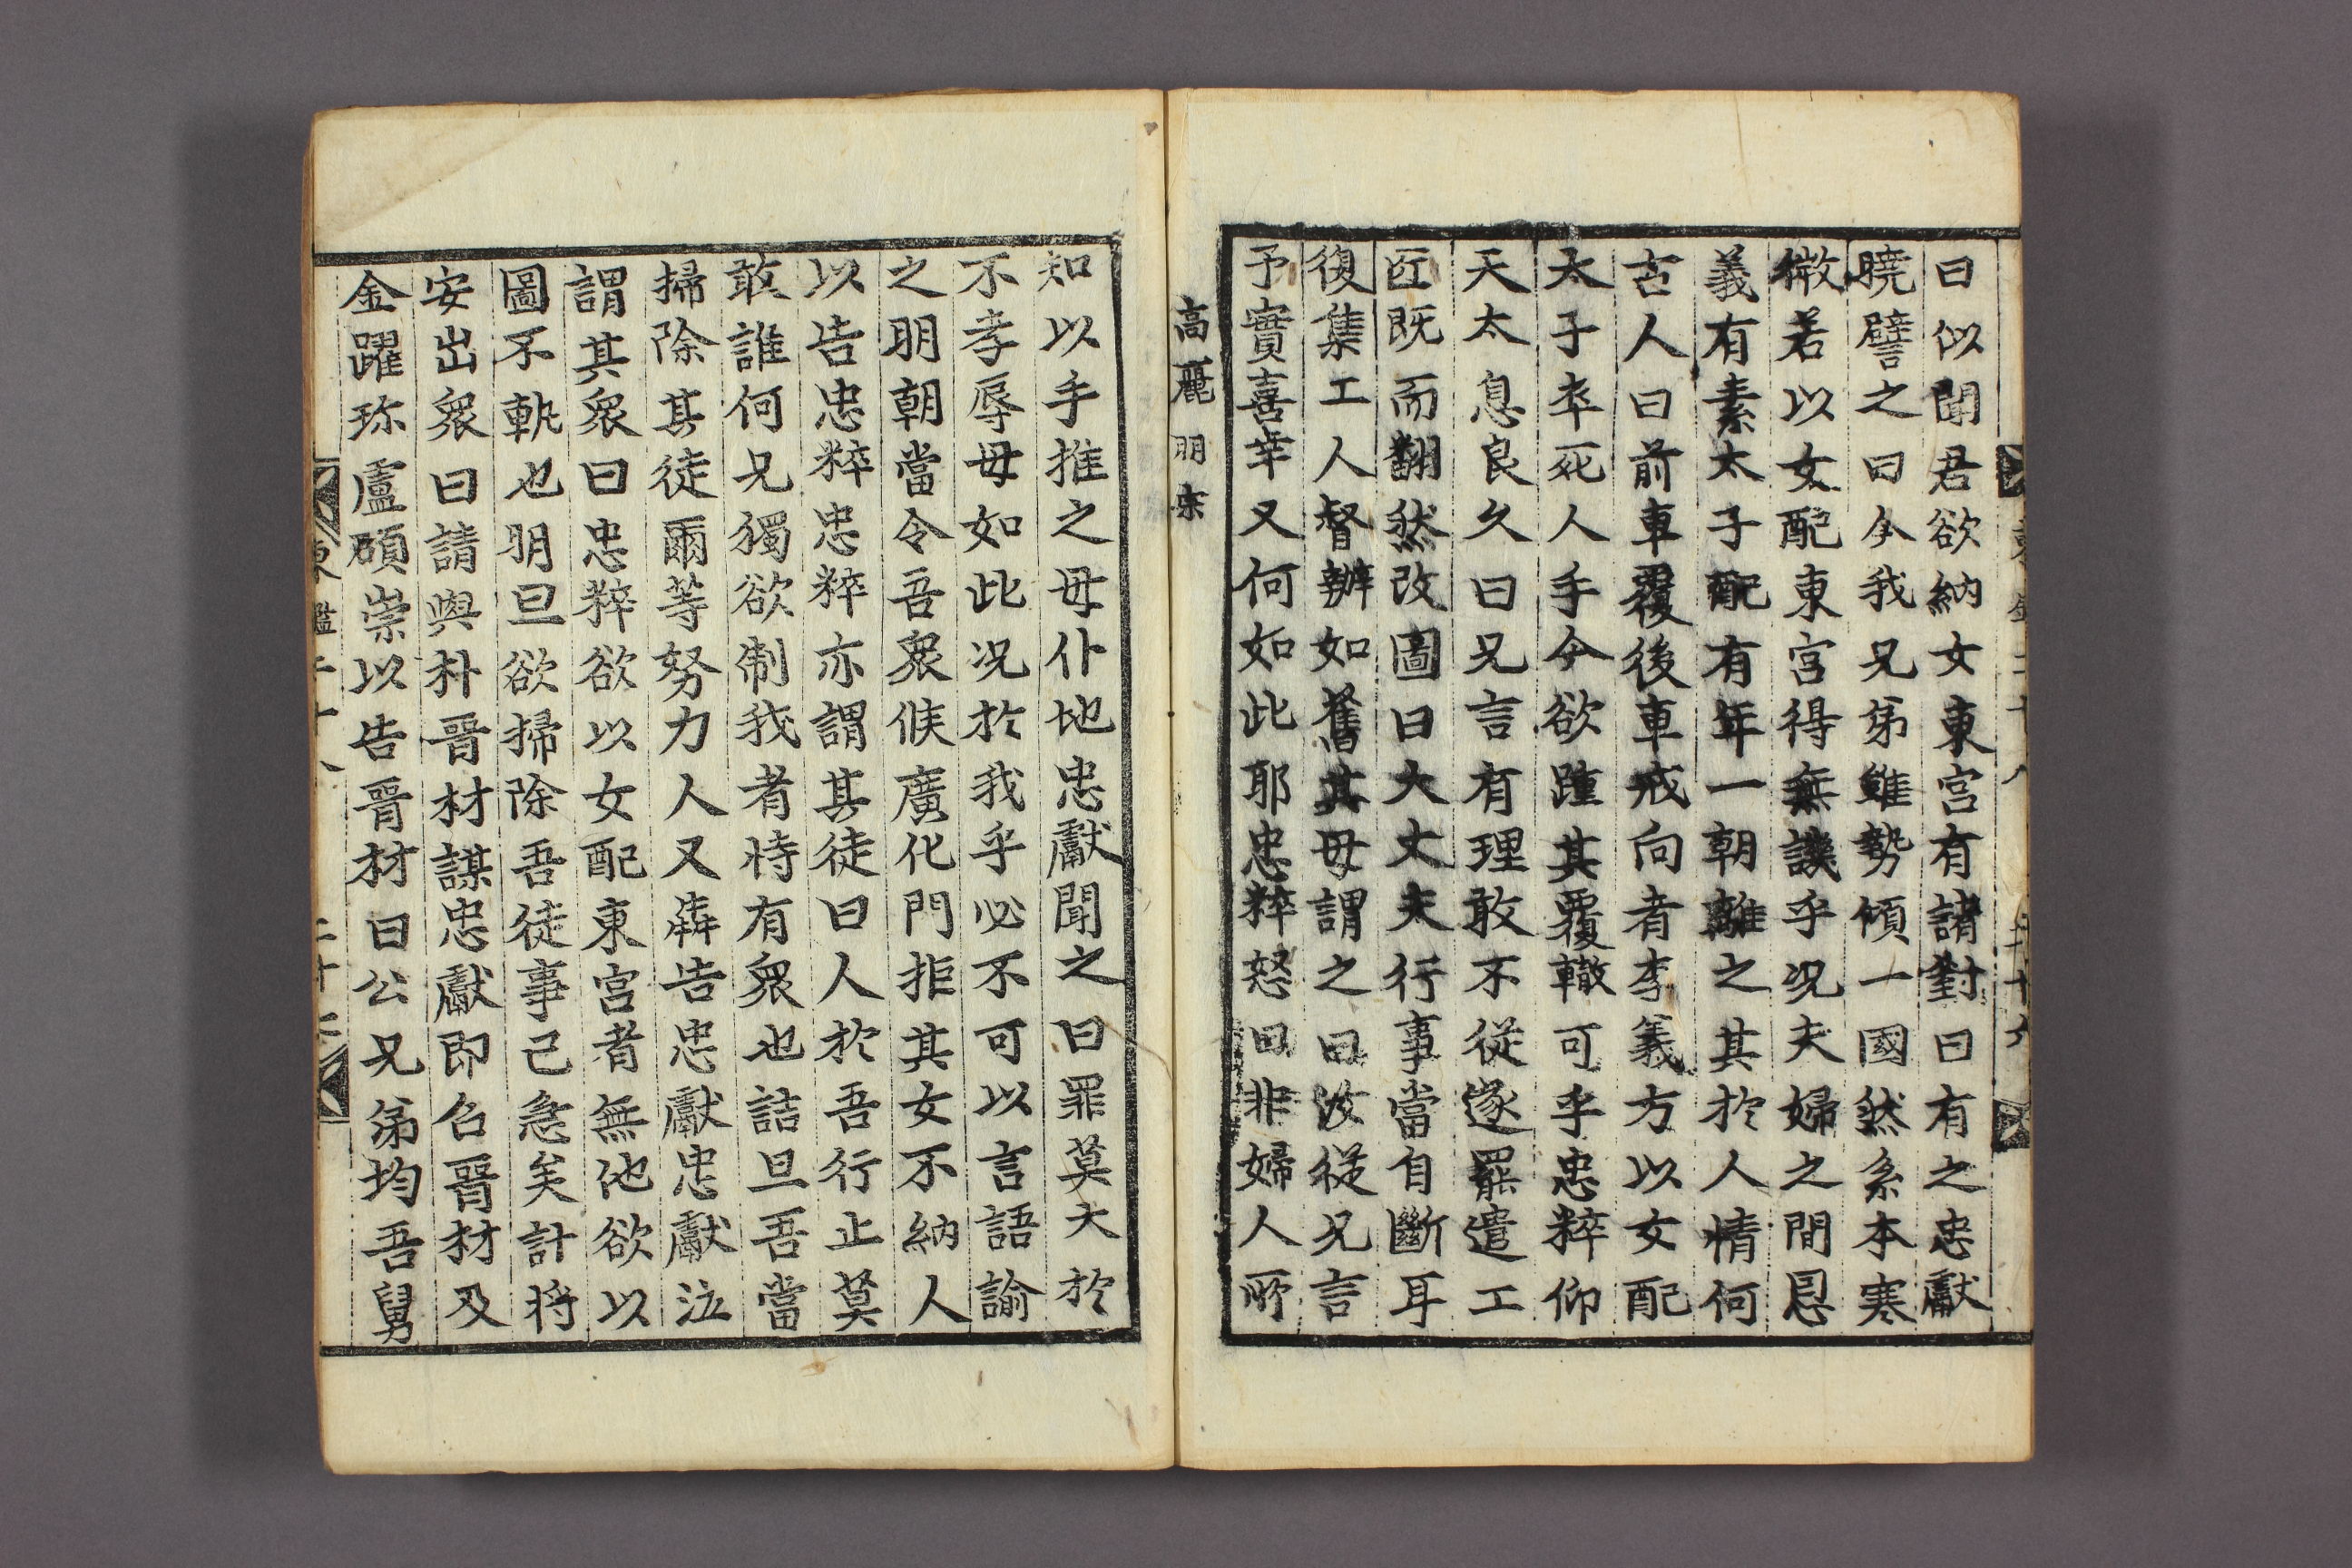 曰似聞君欲納女東宮有諸對曰有之忠獻
曉譬之曰今我兄弟雖勢傾一國然系本寒
微若以女配東宮得無譏乎況夫婦之間恩
義有素太子配有年一朝離之其於人情何
古人曰前車覆後車戒向者李義方以女配
太子卒死人手今欲踵其覆轍可乎忠粹仰
天太息良久曰兄言有理敢不從遂罷遣工
匠既而翻然改圖曰大丈夫行事當自斷耳
復集工人督辦如舊其母謂之曰汝從兄言
予實喜幸又何如此耶忠粹怒曰非婦人所
高麗 明宗
知以手推之母仆地忠獻聞之曰罪莫大於
不孝辱母如此况於我乎必不可以言語諭
之明朝當令吾衆候廣化門拒其女不納人
以告忠粹忠粹亦謂其徒曰人於吾行止莫
敢誰何兄獨欲制我者恃有衆也詰旦吾當
掃除其徒爾等努力人又犇告忠獻忠獻泣
謂其衆曰忠粹欲以女配東宮者無他欲以
圖不軌也明旦欲掃除吾徒事已急矣計將
安出衆曰請與朴晋材謀忠獻即召晋材及
金躍珎盧碩崇以告晋材曰公兄弟均吾舅
東鑑二十八 二十七